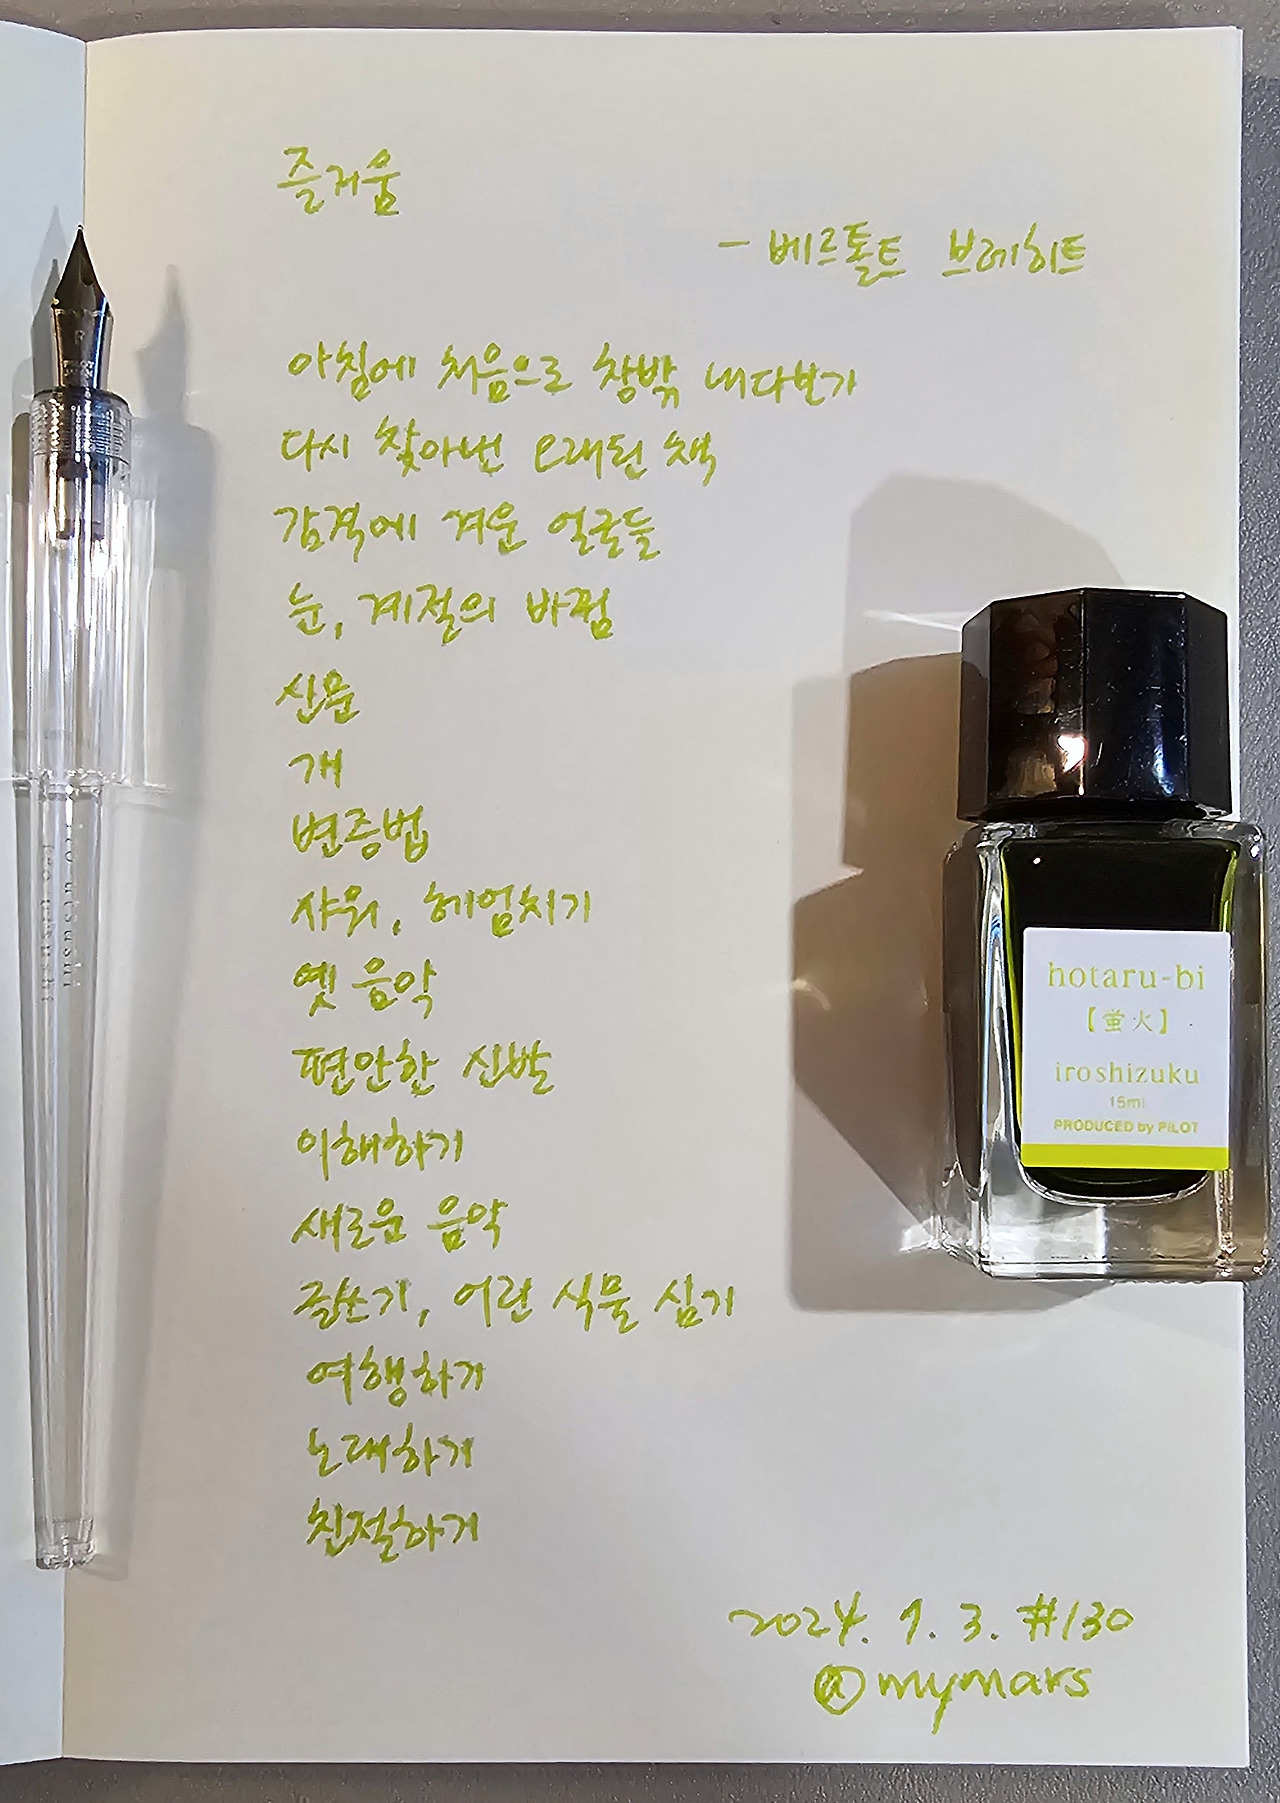 즐거움
- 베르톨트 브레히트
아침에 처음으로 창밖 내다보기
다시 찾아낸 오래된 책
감격에 겨운 얼굴들
눈, 계절의 바뀜
신문
개
변증법
샤워, 헤엄치기
옛 음악
편안한 신발
이해하기
새로운 음악
글쓰기, 어린 식물 심기
여행하기
노래하기
친절하기
2024. 1. 3. #130
@mymars
hotaru-bi
【蛍火】
iroshizuku
15ml
PRODUCED by PILOT